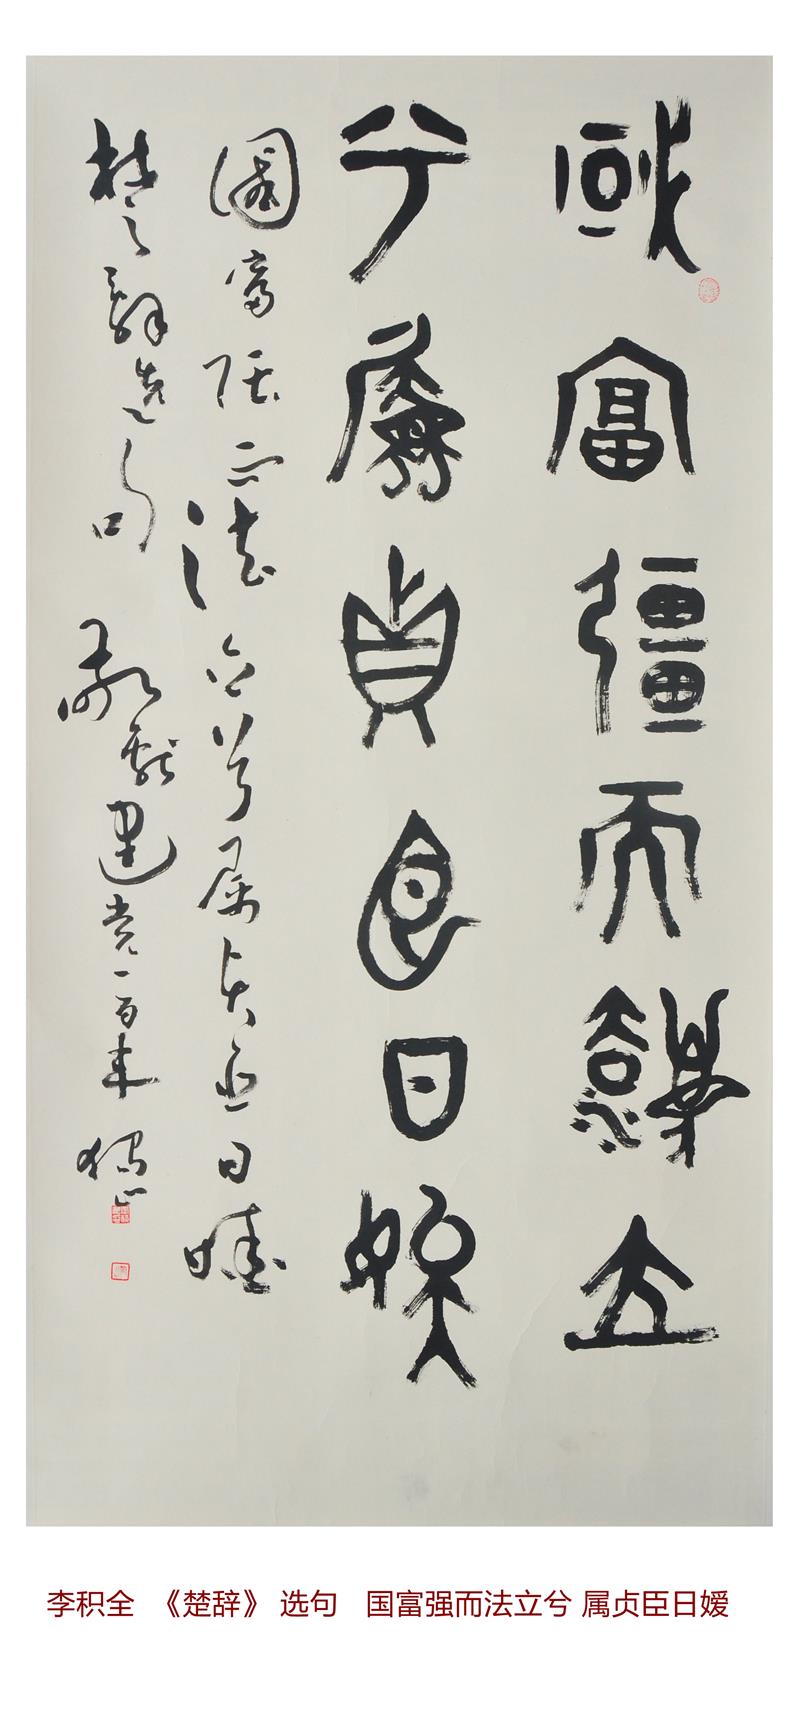 或富彊而灋立
兮属贞臣日娭
国富强而法立兮属贞臣日娭
楚辞选句 敬献建党一百年
李积全 《楚辞》 选句 国富强而法立兮 属贞臣日嫒